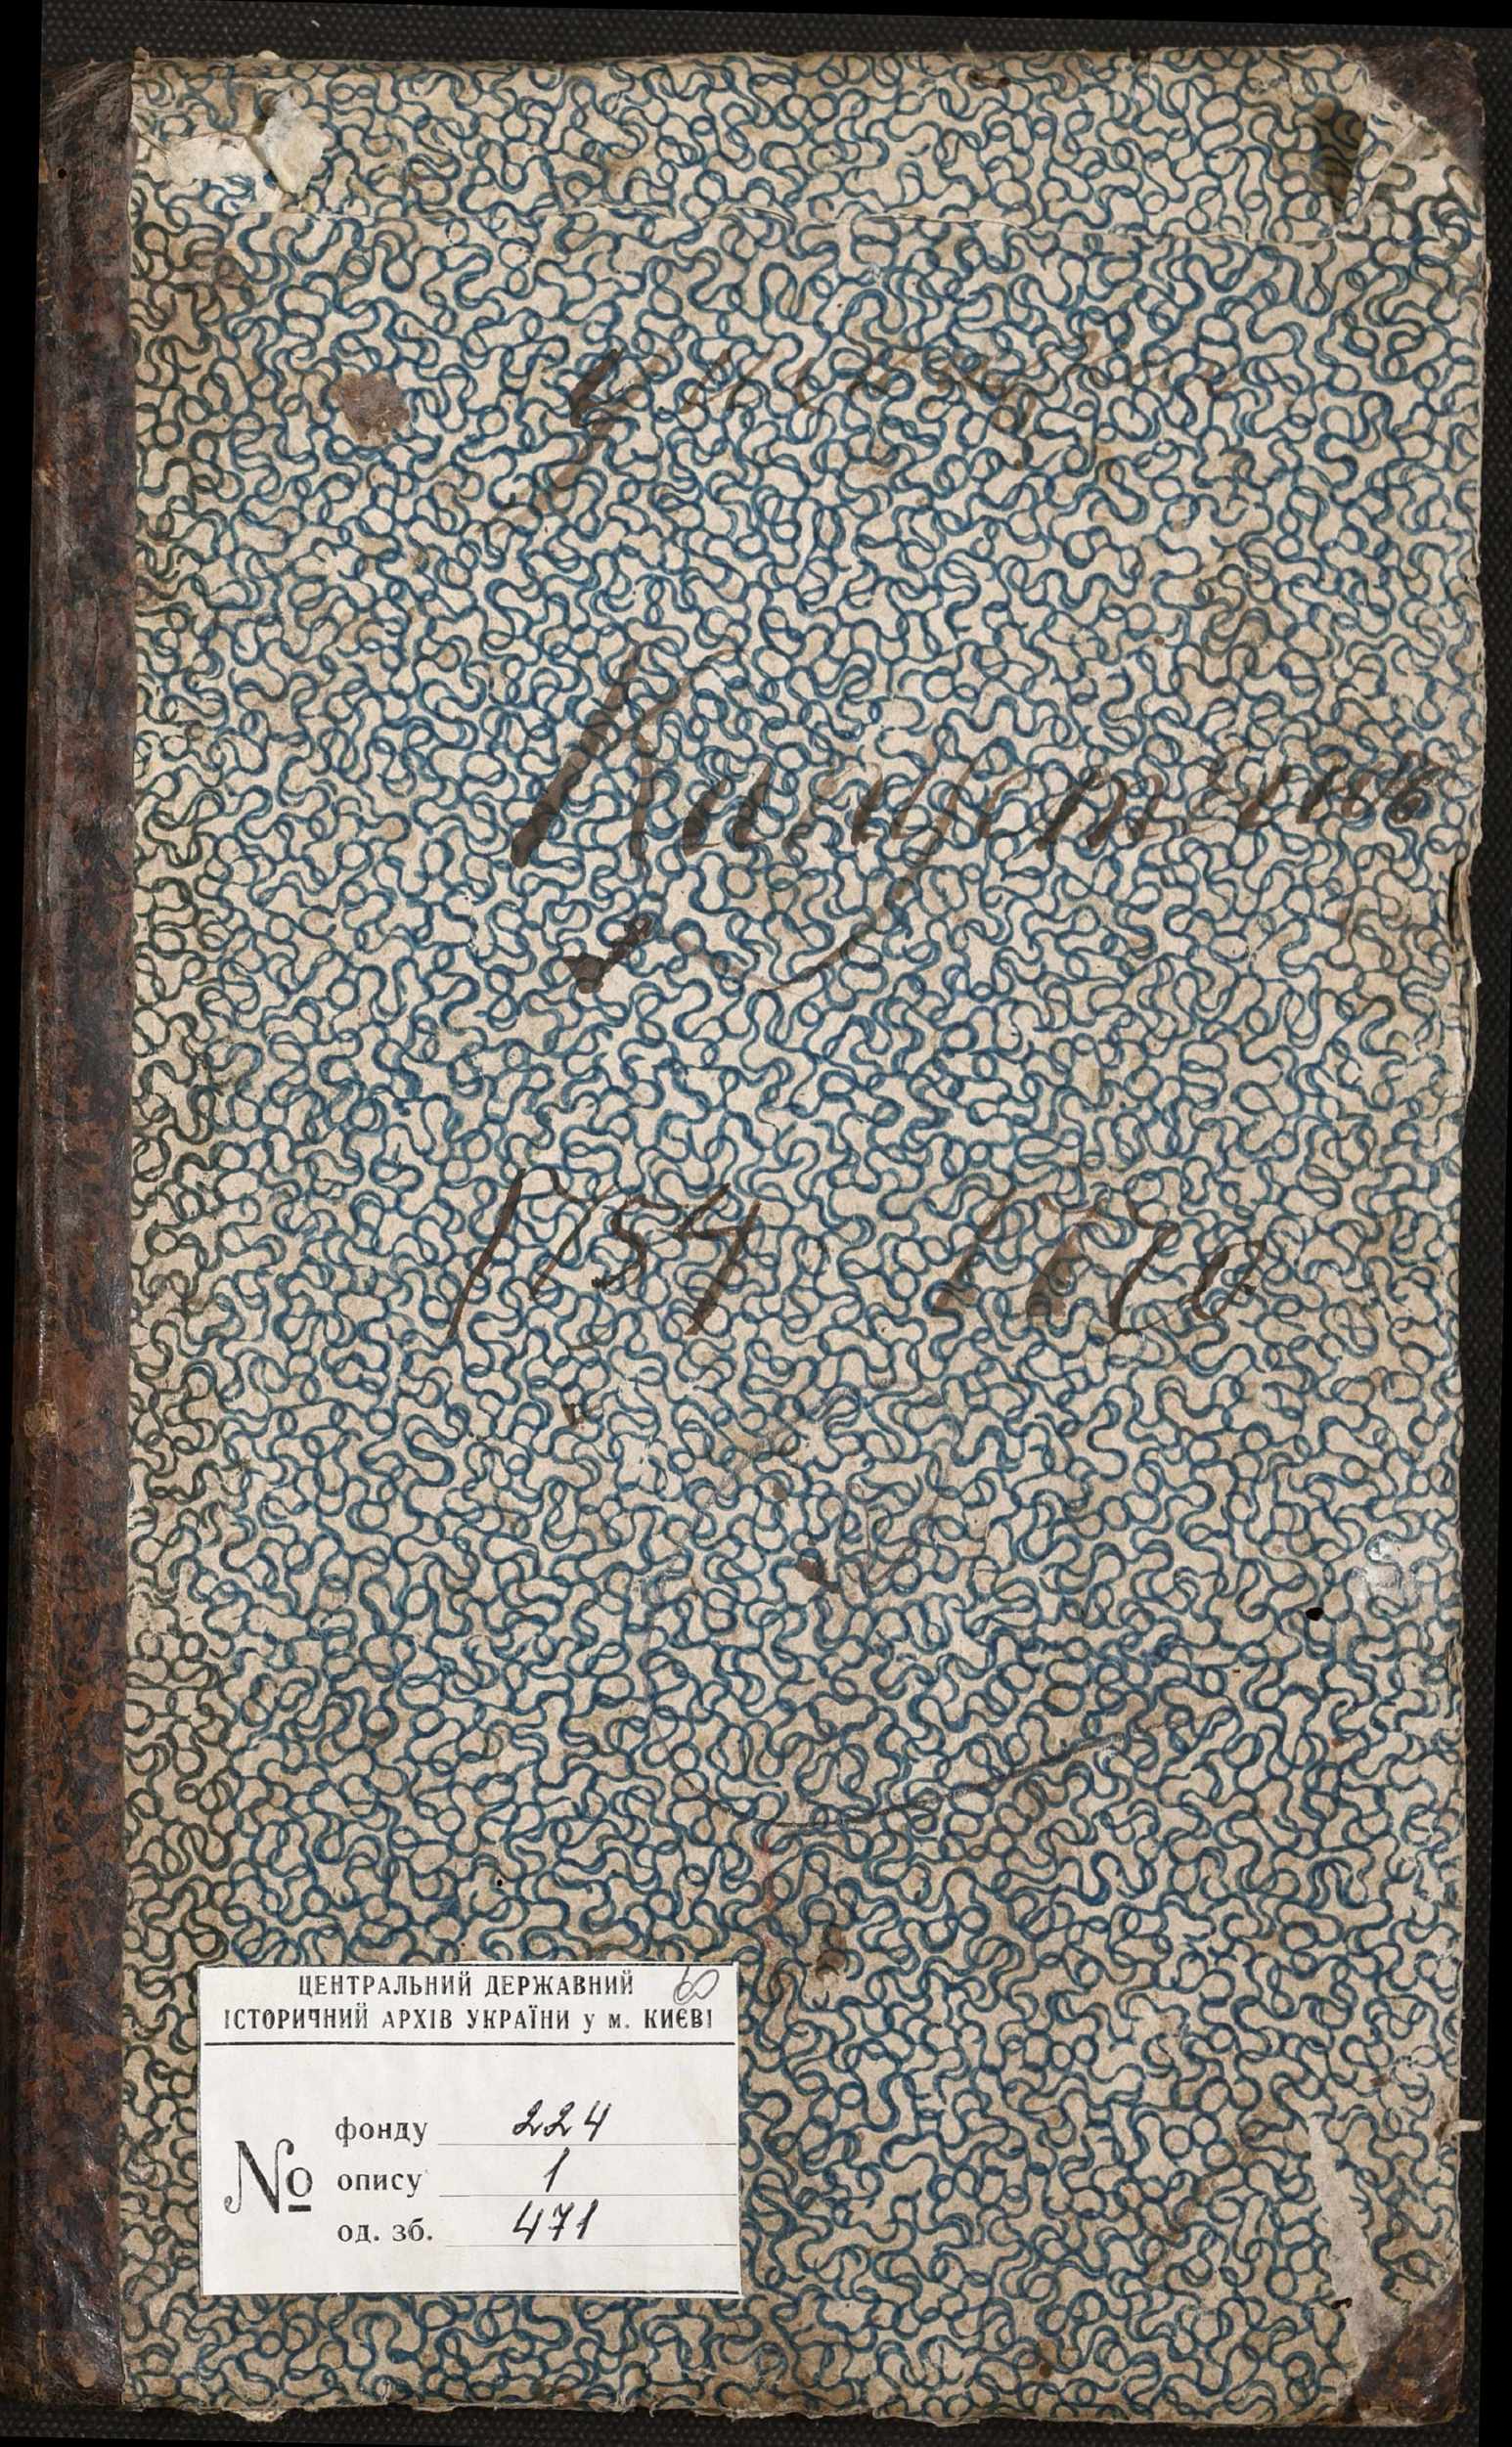 1754 1770
ЦЕНТРАЛЬНИЙ ДЕРЖАВНИЙ 60
ІСТОРИЧНИЙ АРХІВ УКРАЇНИ у м. КИЄВІ
№
фонду 224
опису 1
од. зб. 471